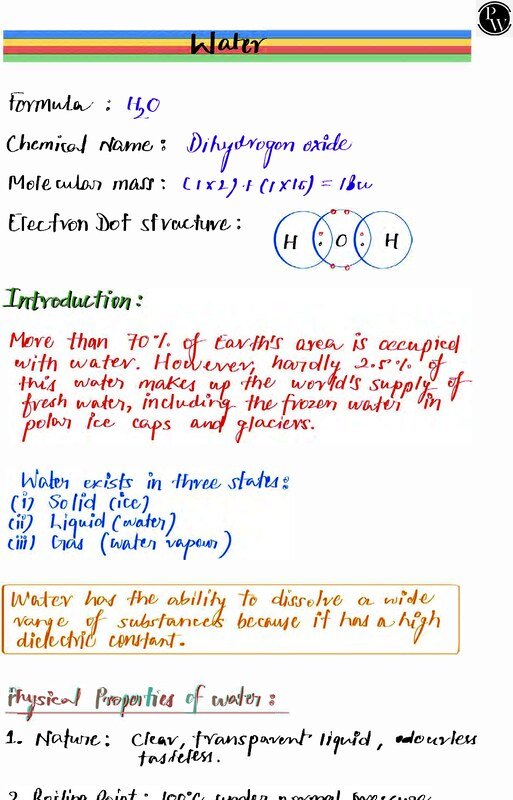 PW
Water
Formula : H2O
Chemical Name : Dihydrogen oxide
Molecular mass : (1x2) + (1x16) = 18u
Electron Dot structure :
H : O : H
Introduction :
More than 70% of Earth's area is occupied
with water. However, hardly 2.5% of
this water makes up the world's supply of
fresh water, including the frozen water in
polar ice caps and glaciers.
Water exists in three states :
(i) Solid (ice)
(ii) Liquid (water)
(iii) Gas (water vapour)
Water has the ability to dissolve a wide
range of substances because it has a high
dielectric constant.
Physical Properties of water :
1. Nature : Clear, transparent liquid, odourless
tasteless.
2. Boiling Point : 100°C under normal pressure